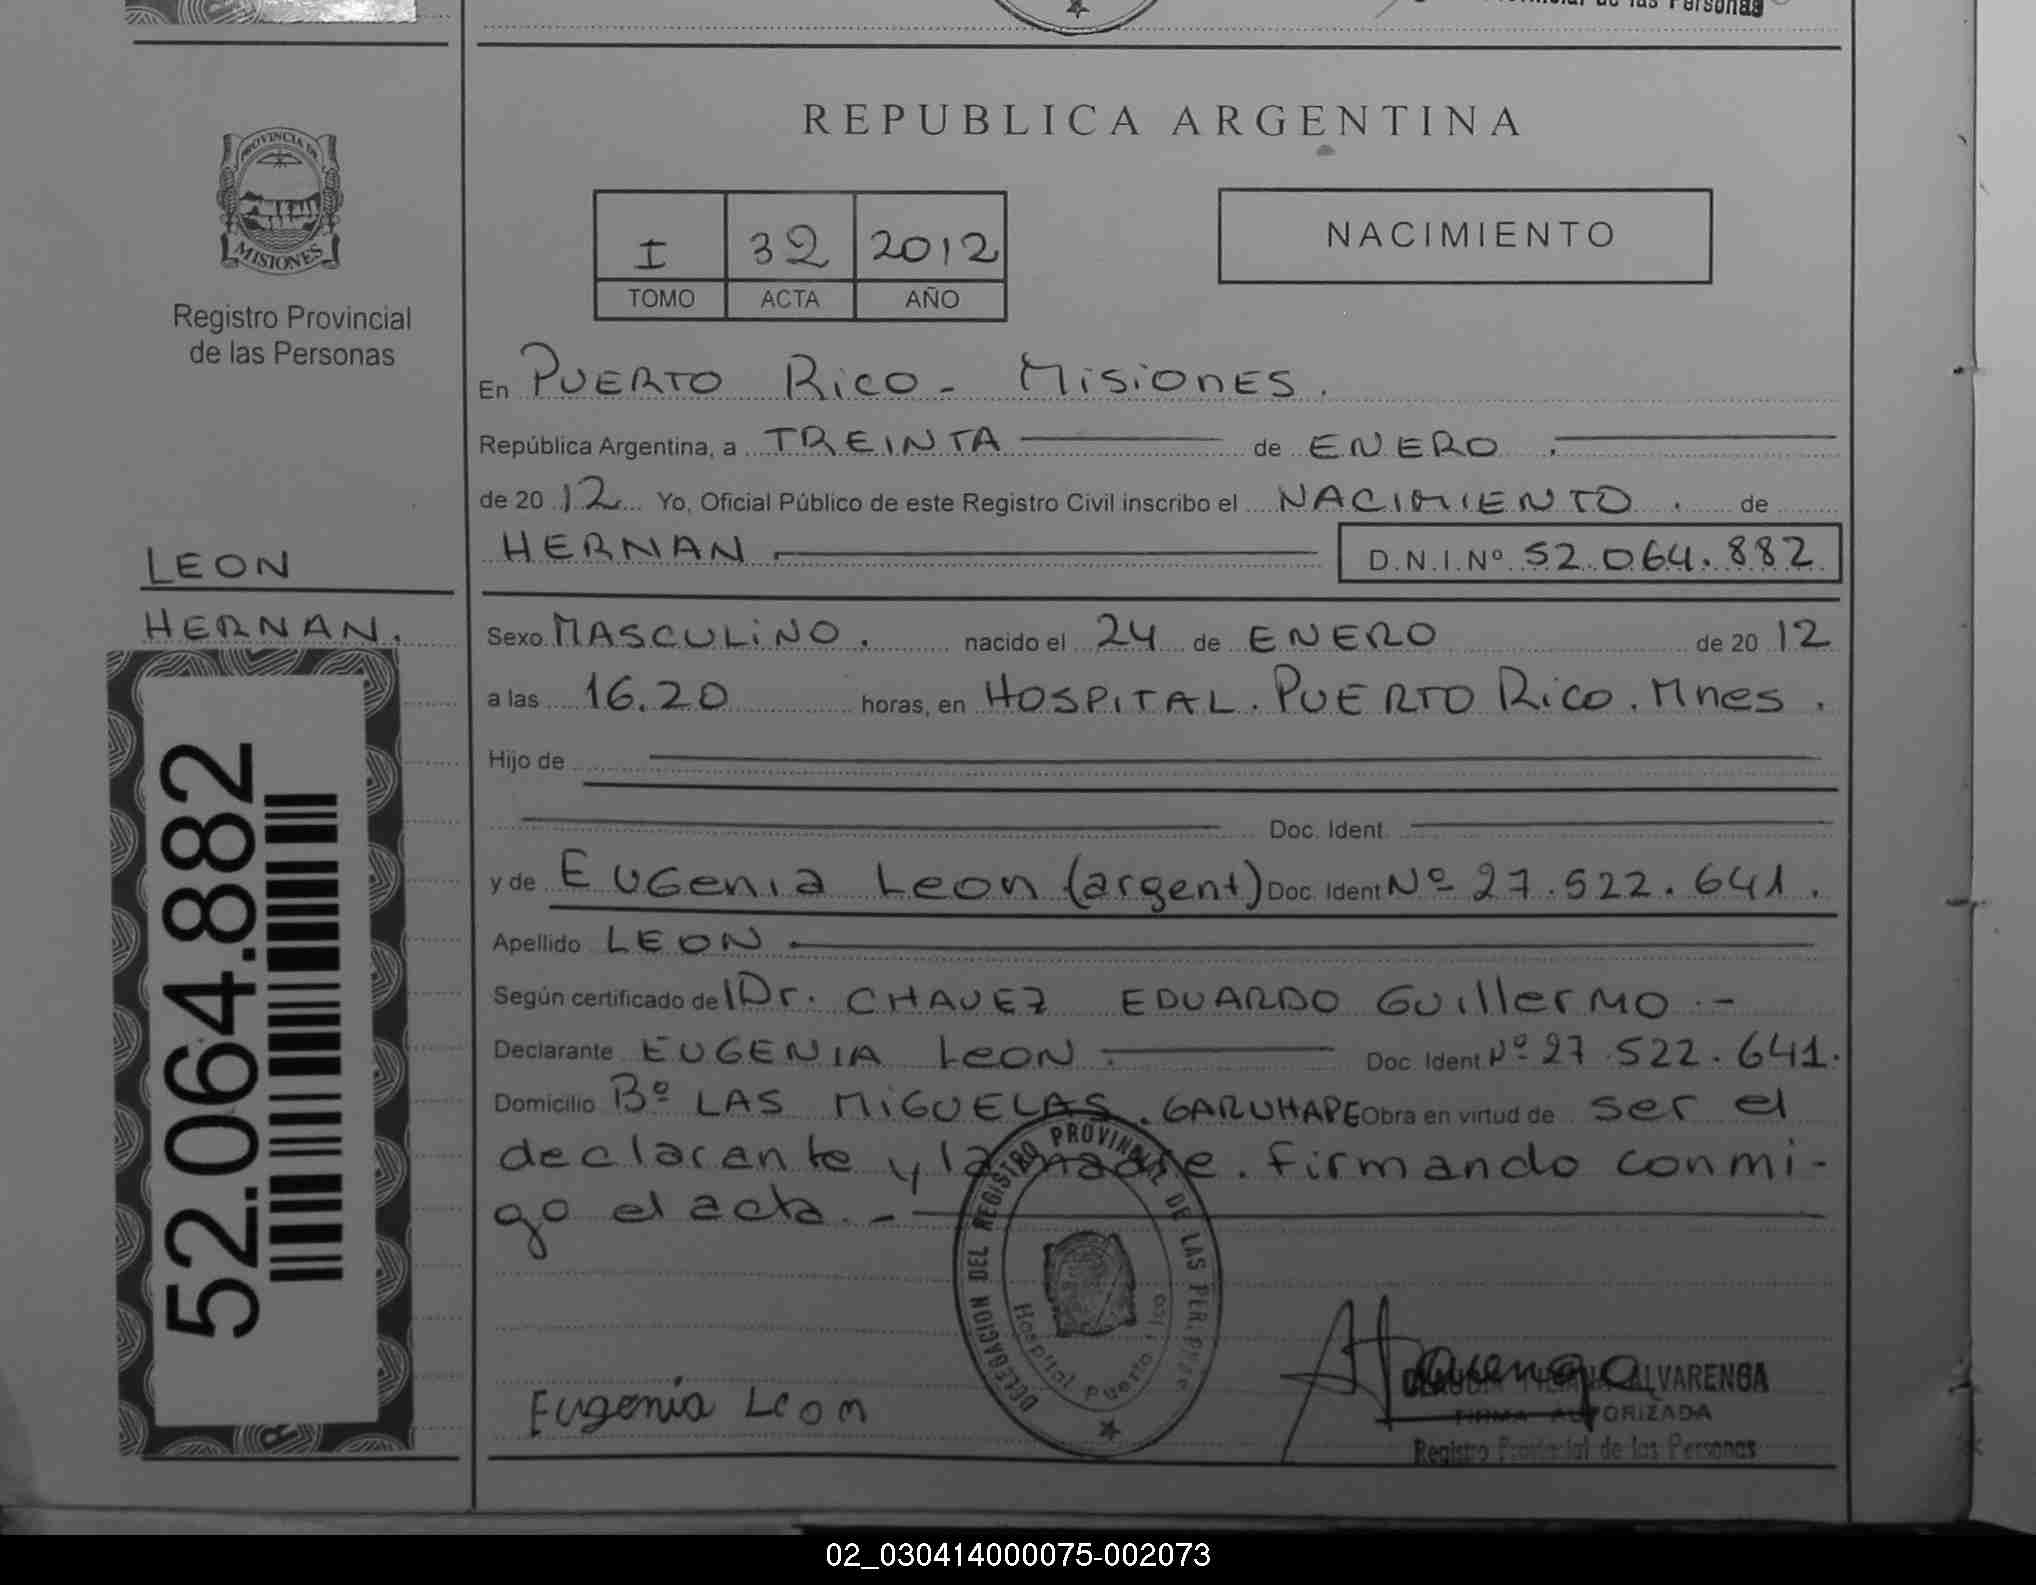 de las Personas
REPUBLICA ARGENTINA
PROVINCIA DE
MISIONES
Registro Provincial
de las Personas
I 32 2012
TOMO ACTA AÑO
NACIMIENTO
En PUERTO RICO - MISIONES.
República Argentina, a TREINTA de ENERO.
de 20 12 Yo, Oficial Público de este Registro Civil inscribo el NACIMIENTO. de
HERNAN D.N.I.Nº 52.064.882
LEON
HERNAN.
Sexo MASCULINO. nacido el 24 de ENERO de 20 12
a las 16.20 horas, en HOSPITAL. PUERTO RICO. Mnes.
Hijo de
Doc. Ident.
y de EUGenia Leon (argent) Doc. Ident Nº 27.522.641.
Apellido LEON
Según certificado del Dr. CHAVEZ EDUARDO GuillerMO.-
Declarante EUGENIA LEON. Doc. Ident. Nº 27.522.641.
Domicilio Bº LAS MIGUELAS. GARUHAPE Obra en virtud de ser el
declarante y la madre. firmando conmi-
go el acta.-
52.064.882
DELEGACION DEL REGISTRO PROVINCIAL DE LAS PERSONAS
Hospital Puerto Rico
Eugenia Leon
Alvarenga
ALVARENGA
FIRMA AUTORIZADA
Registro Provincial de las Personas
02_030414000075-002073